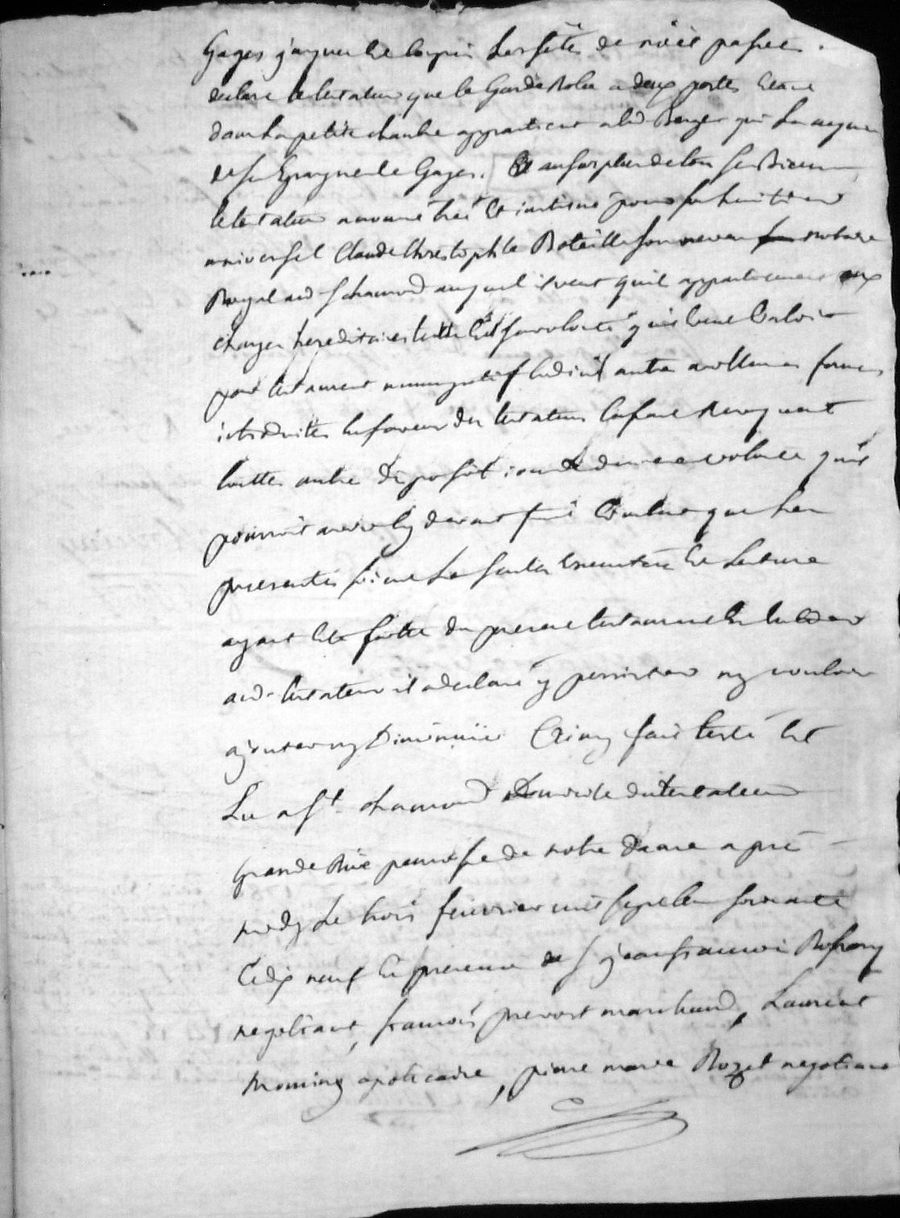 Gages jusques les fêtes de noël passées
declare le testateur que le Garderobe a deux portes étant
dans la petite chambe appartient alad Berger qui la acquis
de ses Epargnes Gages. Et au surplus de tous ses Biens
le testateur a nommé et institué pour son heritier
universel Claude Christophle Bataille son neveu notaire
Royal aud St chamond auquel il veut quil appartiennent aux
charges hereditaires telle Est sa volonté qu'il veut valoir
par testament nuncupatif codicil autre meilleures formes
introduites en faveur des testateurs revoquant
touttes autre Dispositions de derniere volonté quil
pourroit avoir cy devant fait voulant que la
presente seule sorte Execution Et lecture
ayant Eté faitte du present testament En entier
aud. testateur il a declaré y persister ny vouloir
ajouter ny Diminuer Ainsy fait testé Et
Lu a St. chamond Domicile du testateur
Grande Rüe paroisse de notre dame apres
midy Le trois feuvrier mil sept cent soixante
Et dix neuf En presence de Sr jean francois
negotiant, francois prevost marchand, Laurent
apoticaire, pierre marie Rozet negotiant